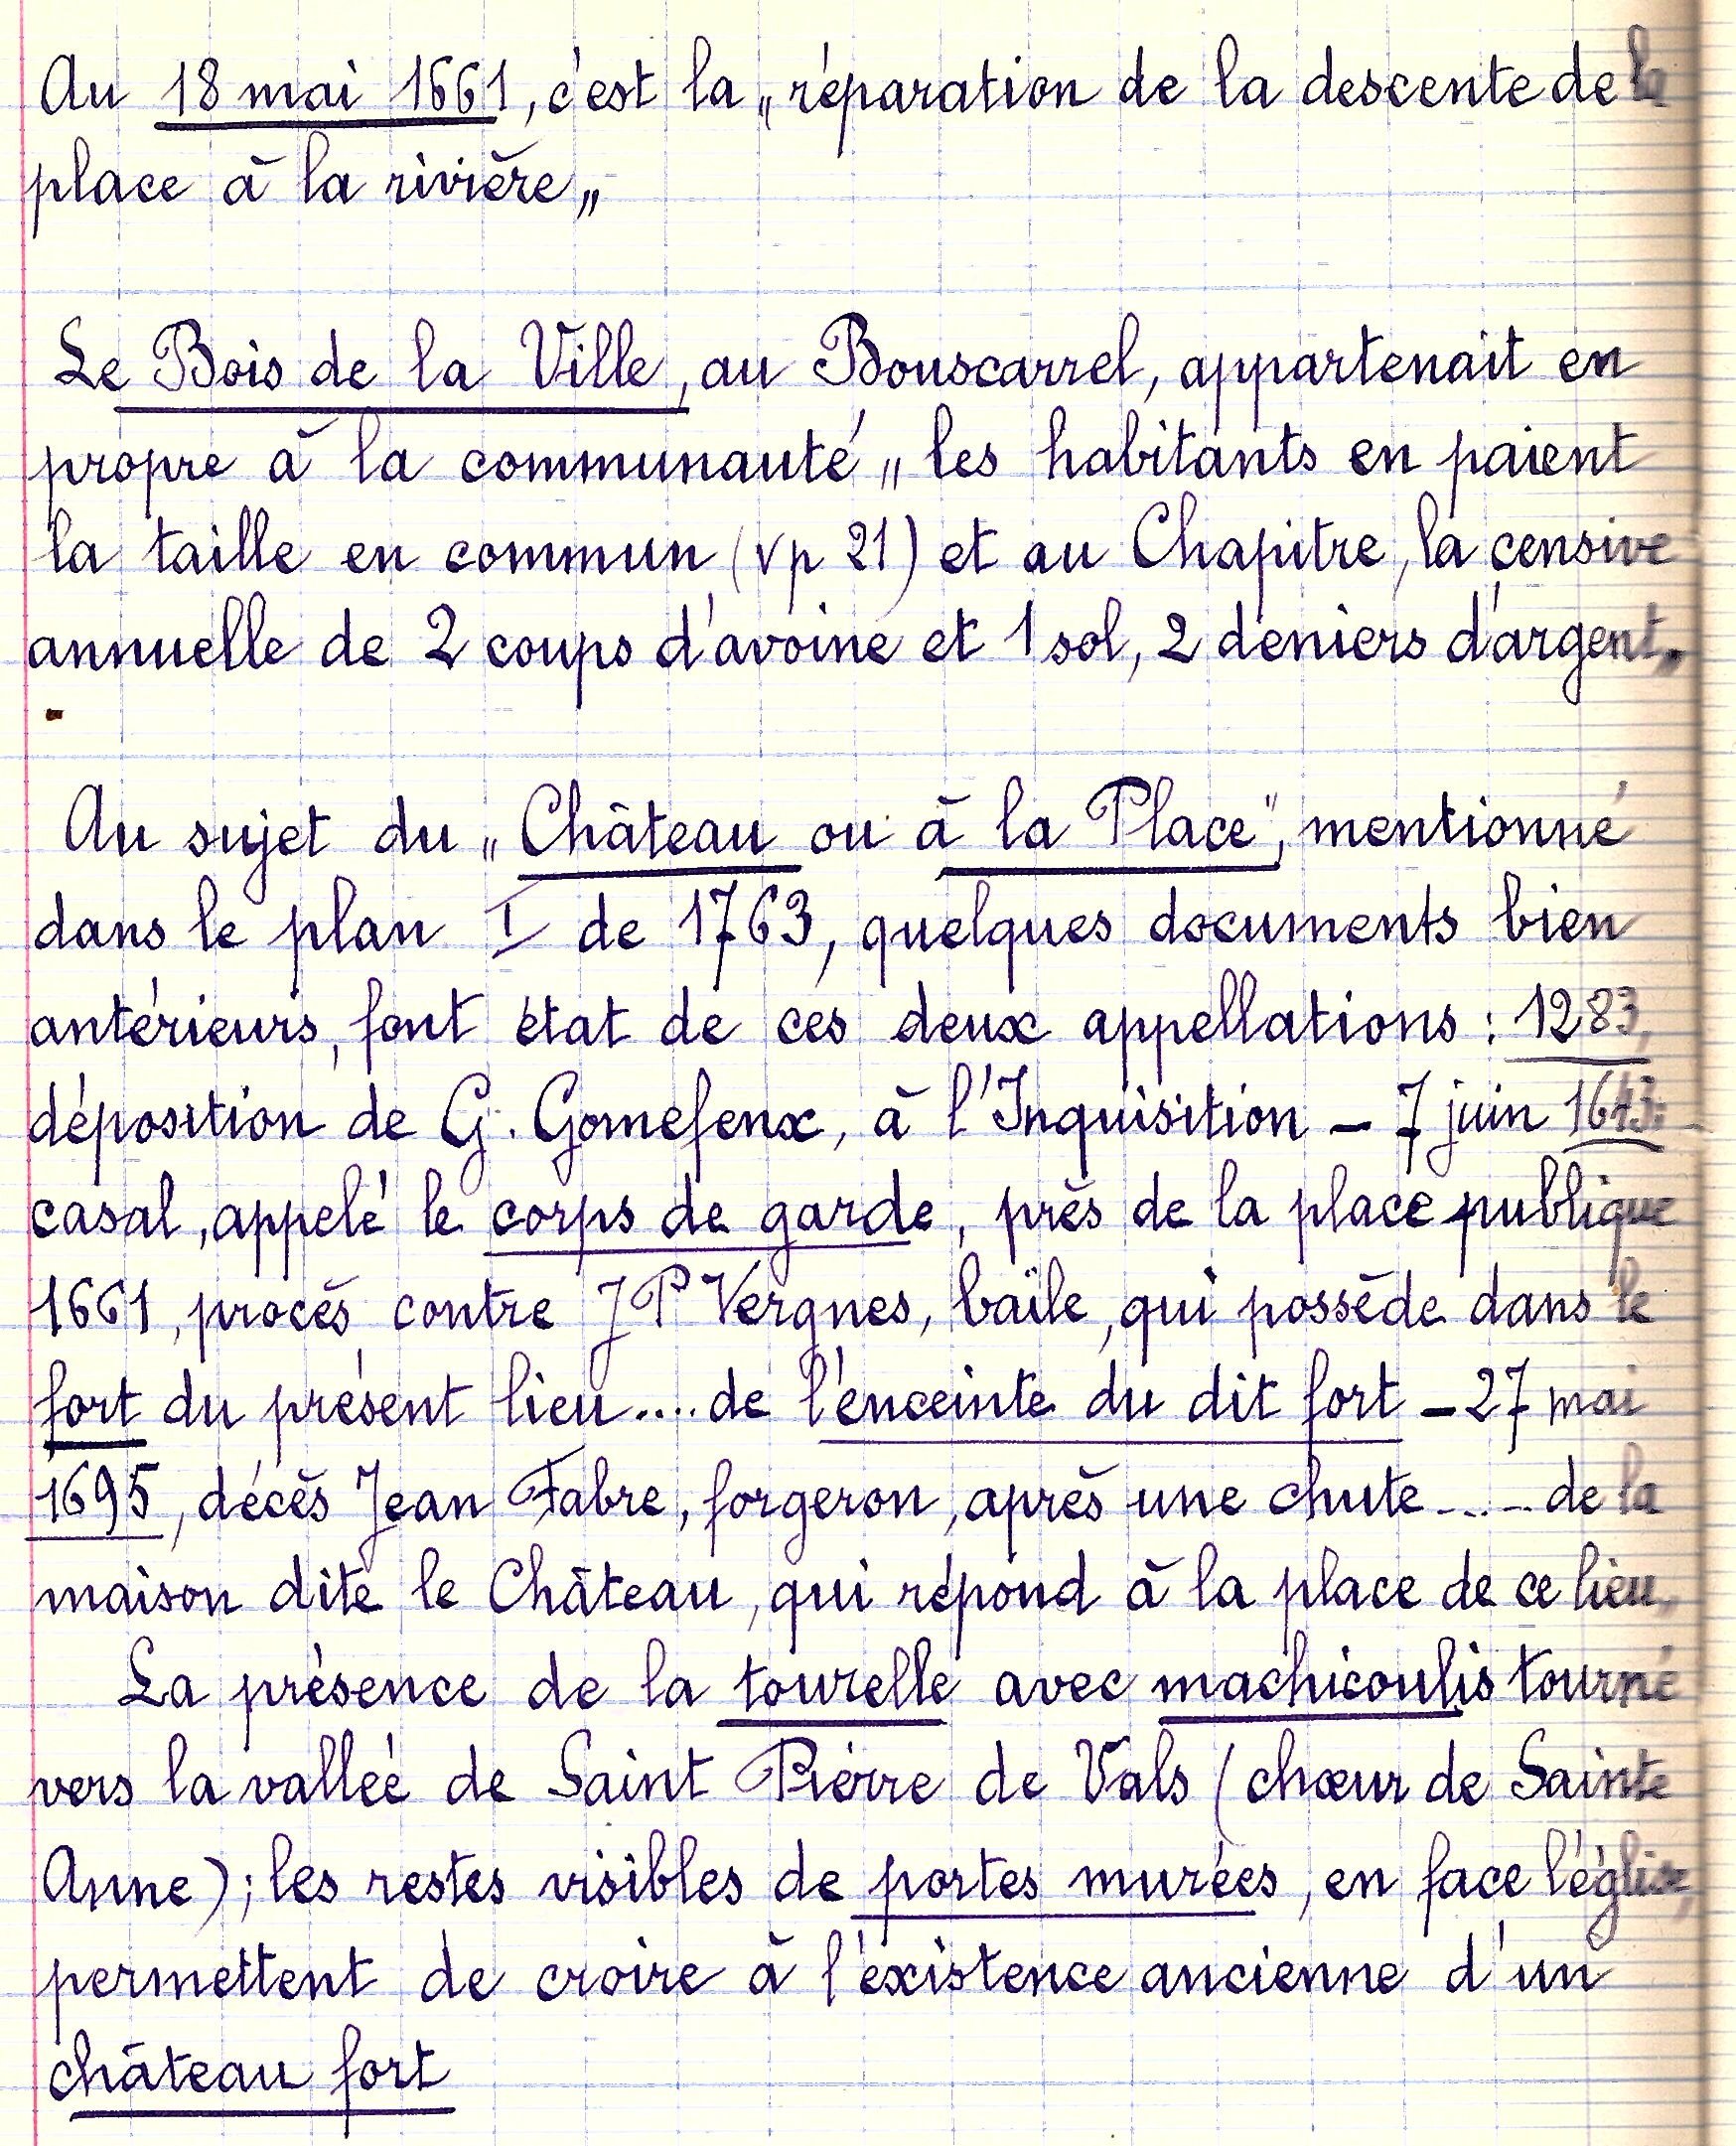 Au 18 mai 1661, c'est la „réparation de la descente de la
place à la rivière„
Le Bois de la Ville, au Bouscarrel, appartenait en
propre à la communauté „ les habitants en paient
la taille en commun (vp 21) et au Chapitre, la censive
annuelle de 2 coups d'avoine et 1 sol, 2 deniers d'argent„
Au sujet du „Château ou à la Place", mentionné
dans le plan I de 1763, quelques documents bien
antérieurs, font état de ces deux appellations : 1283,
déposition de G. Gomefenx, à l'Inquisition – 7 juin 1643:
casal, appelé le corps de garde, près de la place publique
1661, procès contre JP Vergnes, baïle, qui possède dans le
fort du présent lieu.... de l'enceinte du dit fort – 27 mai
1695, décès Jean Fabre, forgeron, après une chute .... de la
maison dite le Château, qui répond à la place de ce lieu,
La présence de la tourelle avec machicoulis tourné
vers la vallée de Saint Pierre de Vals (chœur de Sainte
Anne); les restes visibles de portes murées, en face l'église,
permettent de croire à l'existence ancienne d'un
château fort